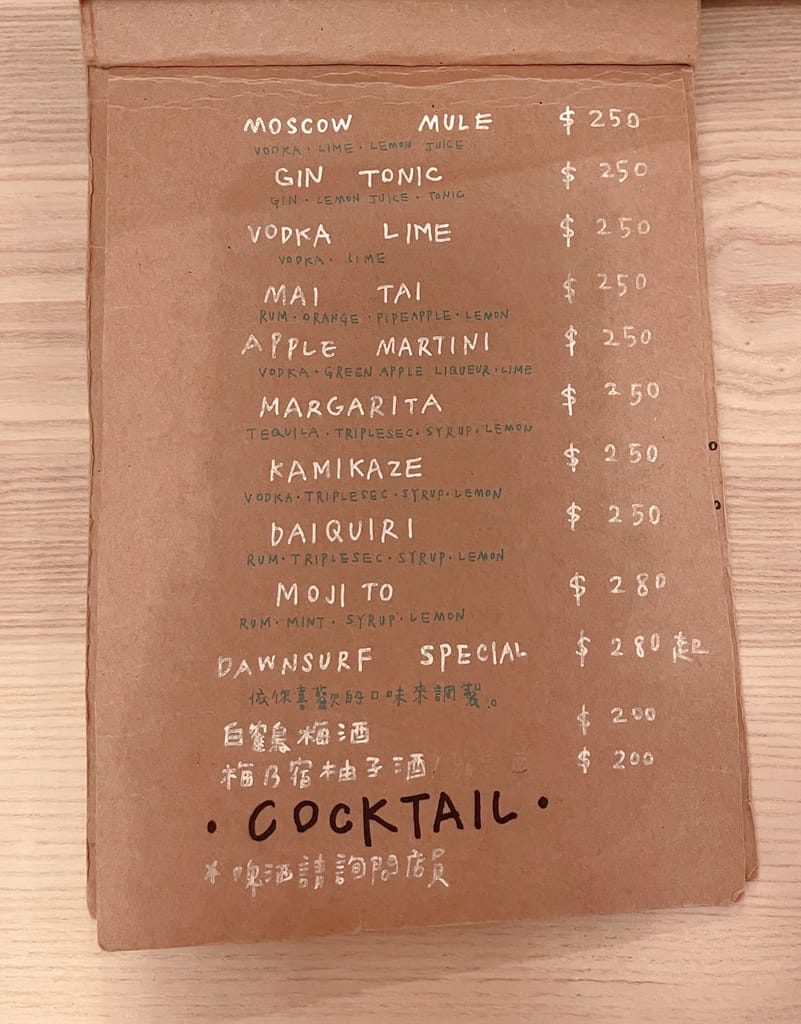 MOSCOW MULE $250
VODKA · LIME · LEMON JUICE
GIN TONIC $250
GIN · LEMON JUICE · TONIC
VODKA LIME $250
VODKA · LIME
MAI TAI $250
RUM · ORANGE · PIPEAPPLE · LEMON
APPLE MARTINI $250
VODKA · GREEN APPLE LIQUEUR · LIME
MARGARITA $250
TEQUILA · TRIPLESEC · SYRUP · LEMON
KAMIKAZE $250
VODKA · TRIPLESEC · SYRUP · LEMON
DAIQUIRI $250
RUM · TRIPLESEC · SYRUP · LEMON
MOJITO $280
RUM · MINT · SYRUP · LEMON
DAWNSURF SPECIAL $280起
依你喜歡的口味來調製。
白鶴梅酒 $200
梅乃宿柚子酒 $200
· COCKTAIL ·
* 啤酒請詢問店員